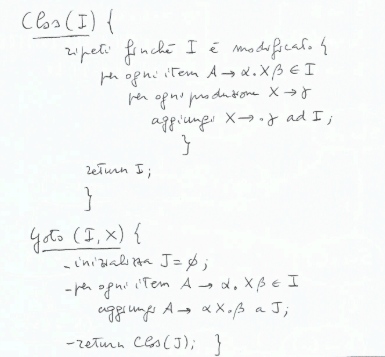 Clos(I) {
ripeti finché I è modificato {
per ogni item A → α.Xβ ∈ I
per ogni produzione X → γ
aggiungi X → .γ ad I;
}
return I;
}
Goto (I, X) {
- inizializza J = ∅;
- per ogni item A → α.Xβ ∈ I
aggiungi A → αX.β a J;
- return Clos(J); }